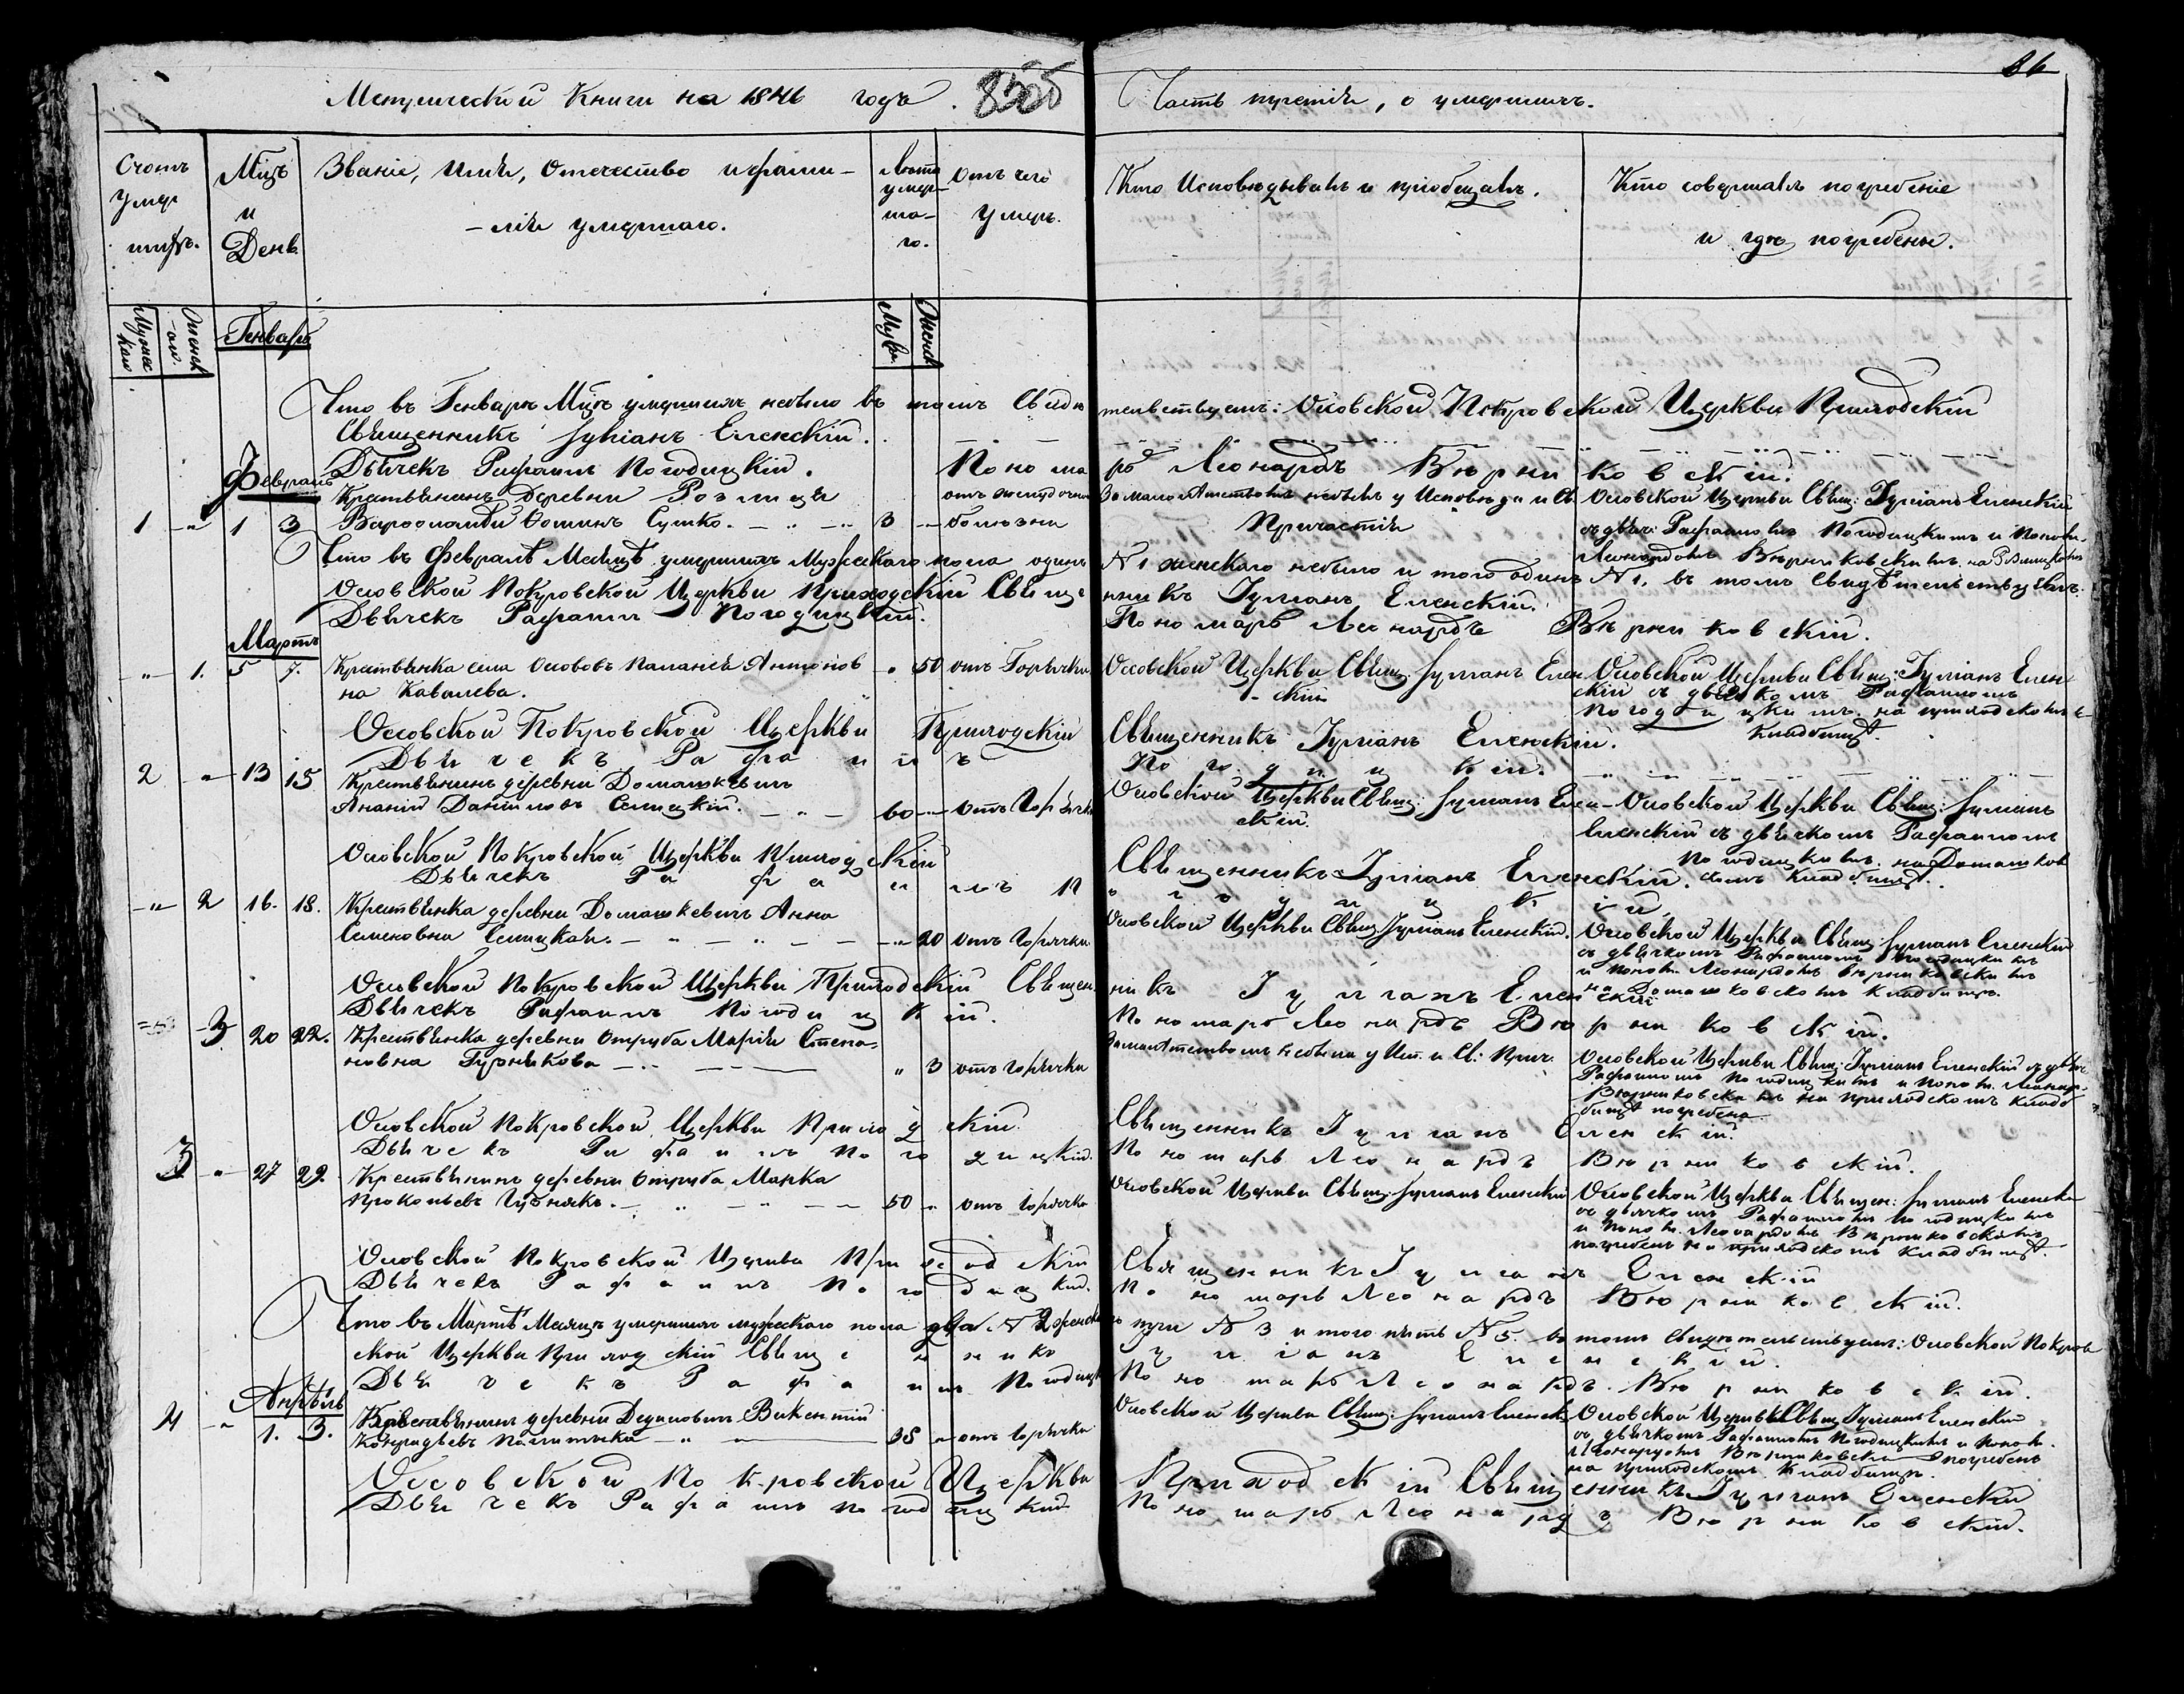 Метрической Книги на 1846 годъ.
Часть третія, о умершихъ.
86
Счотъ умер шихъ.
Мѣсяцъ и День
Званіе, Имя, Отечество и фами-
-лія умершаго.
Лѣта умер-
ша-
го.
Отъ чего
умеръ.
Кто Исповѣдывалъ и пріобщалъ.
Кто совершалъ погребеніе
и гдѣ погребены.
Мужес
кой
Женск
ой.
Муж.
Женск
Генварь
Что въ Генварѣ Мцѣ умершихъ небыло въ томъ Свидѣтельствуетъ: Осовской Покровской Церкви Приходскій
Священникъ Іуліанъ Еленскій.
Дьячекъ Рафаилъ Погодицкій. Пономарь Леонардъ Вюрниковскій.
Февраль
1 -"- 1 3
Крестьянинъ Деревни
Варфоломей Сушко. 3
отъ желудочной
болезни
За малолѣтствомъ небылъ у Исповѣди и Св.
Причастія
Осовской Церкви Свящ: Іуліанъ Еленскій
съ дьяч: Рафаиломъ Погодицкимъ и Поном.
Леонардомъ Вюрниковскимъ, на
Что въ Февралѣ Месяцѣ умершихъ Мужескаго пола одинъ N 1 женскаго небыло и того одинъ N 1, въ томъ Свидѣтельствуетъ.
Осовской Покровской Церкви Приходскій Священникъ Іуліанъ Еленскій.
Дьячекъ Рафаилъ Погодицкій. Пономарь Леонардъ Вюрниковскій.
Мартъ
-"- 1. 5 7.
Крестьянка села Осововъ Антонов
на Ковалева. " 50 отъ Горячки
Осовской Церкви Свящ: Іуліанъ Елен
-скій
Осовской Церкви Свящ: Іуліанъ Елен
скій съ дьячкомъ Рафаиломъ
Погодицкимъ на приходскомъ
кладбищѣ.
Осовской Покровской Церкви Приходскій Священникъ Іуліанъ Еленскій.
Дьячекъ Рафаилъ Погодицкій.
2 -"- 13 15
Крестьянинъ деревни Домашкевичъ
Ананій Даниловъ Селицкій. 60 отъ Горячки
Осовской Церкви Свящ: Іуліанъ Елен-
скій.
Осовской Церкви Свящ: Іуліанъ
Еленскій съ дьячкомъ Рафаиломъ
Погодицкимъ на Домашков
скомъ кладбищѣ.
Осовской Покровской Церкви Приходскій Священникъ Іуліанъ Еленскій.
Дьячекъ Рафаилъ Погодицкій.
-"- 2 16. 18.
Крестьянка деревни Домашкевичъ Анна
Семеновна Селицкая. 20 отъ горячки
Осовской Церкви Свящ. Іуліанъ Еленскій.
Осовской Церкви Свящ Іуліанъ Еленскій
съ дьячкомъ Рафаиломъ Погодицкимъ
и Поном. Леонардомъ Вюрниковскимъ
на Домашковскомъ кладбищѣ.
Осовской Покровской Церкви Приходскій Священникъ Іуліанъ Еленскій
Дьячекъ Рафаилъ Погодицкій. Пономарь Леонардъ Вюрниковскій.
3 20 22.
Крестьянка деревни Отруба Марія Степа-
новна " 3 отъ горячки
За малѣтствомъ небыла у Исп. и Св: Прич.
Осовской Церкви Свящ: Іуліанъ Еленскій съ дьяч
Рафаиломъ Погодицкимъ и Поном. Леонар.
Вюрниковскимъ на приходскомъ кладб
бищѣ погребена
Осовской Покровской Церкви Приходскій Священникъ Іуліанъ Еленскій.
Дьячекъ Рафаилъ Погодицкій. Пономарь Леонардъ Вюрниковскій.
3 -"- 27 29.
Крестьянинъ деревни Отруба Марка
Прокопьевъ 50 " отъ горячки
Осовской Церкви Свящ: Іуліанъ Еленскій
Осовской Церкви Священ: Іуліанъ Еленскій
съ дьячкомъ Рафаиломъ Погодицкимъ
и Поном. Леонардомъ Вюрниковскимъ
погребенъ на приходскомъ кладбищѣ.
Осовской Покровской Церкви Приходскій Священникъ Іуліанъ Еленскій
Дьячекъ Рафаилъ Погодицкій. Пономарь Леонардъ Вюрниковскій.
Что въ Мартѣ Месяцѣ умершихъ мужескаго пола два N 2 женска го три N 3 и того пять N 5. въ томъ свидѣтельствуетъ: Осовской Покров
ской Церкви Приходскій Священникъ Іуліанъ Еленскій.
Дьячекъ Рафаилъ Погодицк Пономарь Леонардъ Вюрниковскій.
Апрѣль
4 -"- 1. 3.
Крестьянинъ деревни Викентій
38 " отъ горячки
Осовской Церкви Свящ: Іуліанъ Еленск
Осовской Церкви Свящ Іуліанъ Еленскій
съ дьячкомъ Рафаиломъ Погодицкимъ и Поном.
Леонардомъ Вюрниковски погребенъ
на приходскомъ кладбищѣ.
Осовской Покровской Церкви Приходскій Священникъ Іуліанъ Еленскій
Дьячекъ Рафаилъ Погодицкій Пономарь Леонардъ Вюрниковскій.